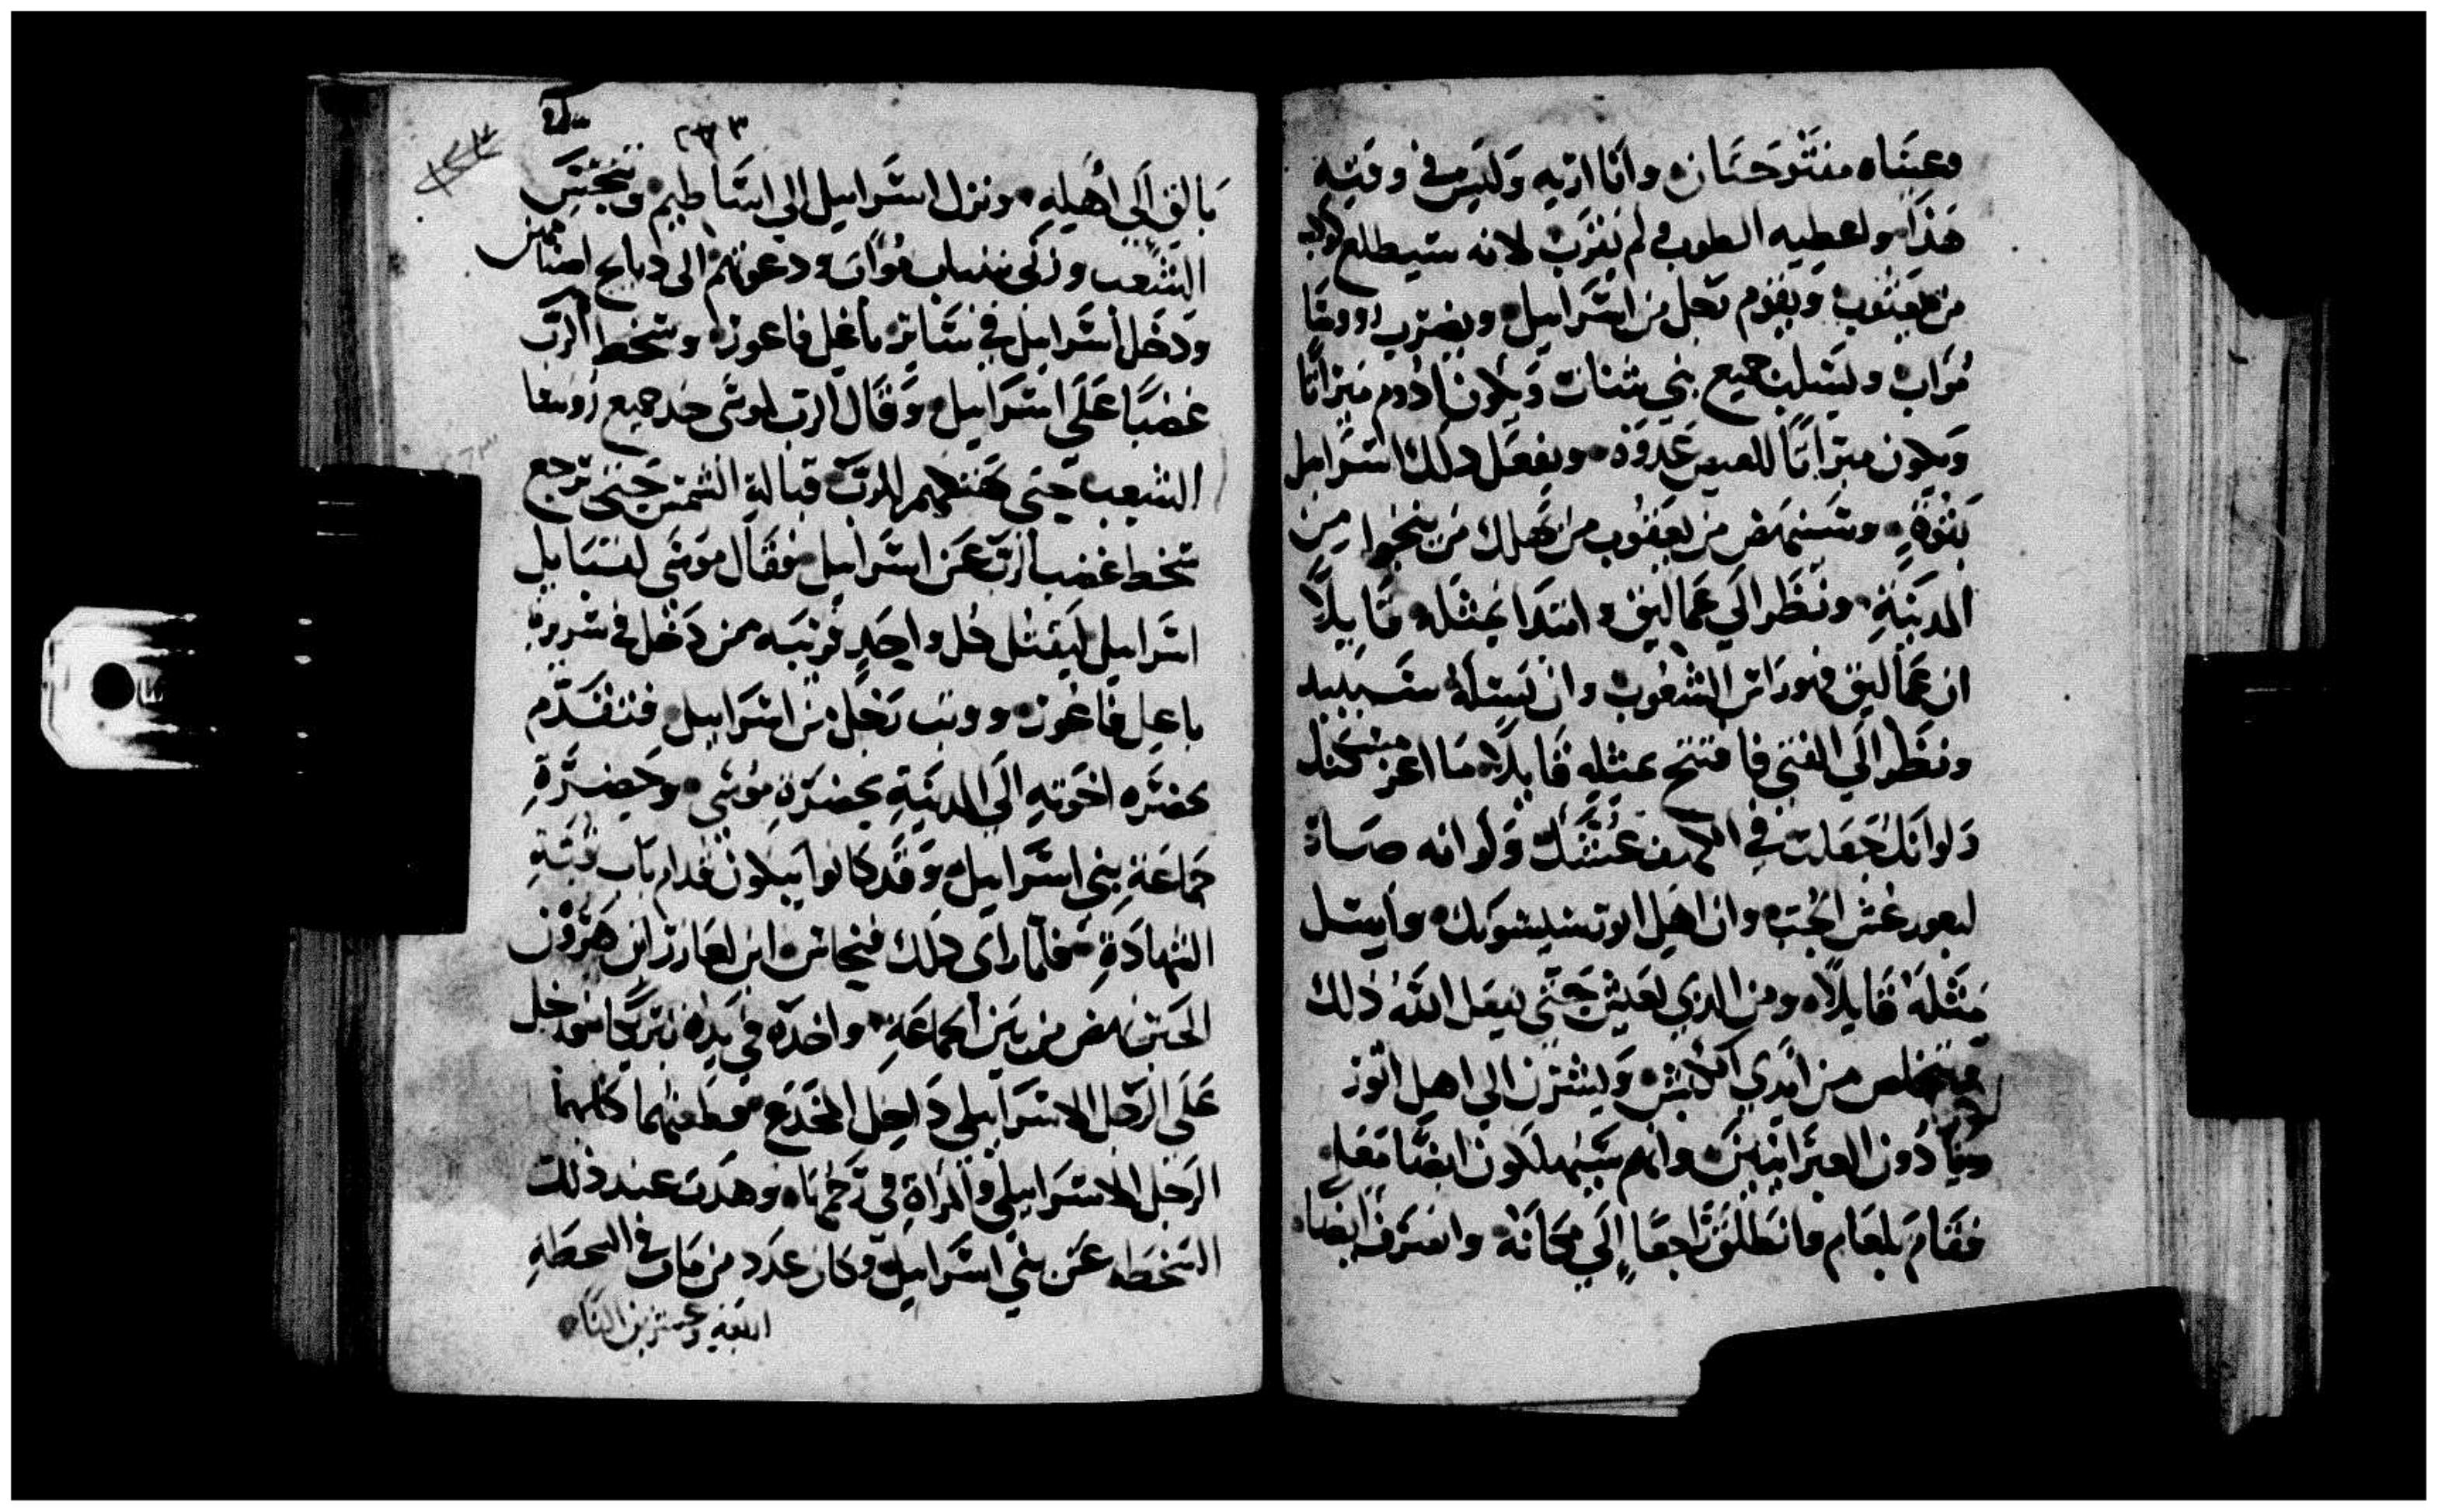 وعيناه مفتوحتان وانا اريه وليس في وقته
هذا واعطيه الطوبى ولم يقترب لانه سيطلع كوكب
من يعقوب ويقوم رجل من اسرائيل ويضرب رووسا
مواب ويسلب جميع بني شثات ويكون ادوم ميراثا
ويكون ميراثا للعيص عدوه ويفعل ذلك اسرائيل
بقوة وسينهض من يعقوب من يهلك من ينجوا من
المدينة ونظر الي عماليق وابتدا بمثله قايلا
ان عماليق هو راس الشعوب وان نسله سيبيد
ونظر الي القني فافتتح بمثله قايلا ما اعز مسكنك
ولو انك جعلت في الكهف عشك ولو انه صار
لبعور عش الحية وان اهل اتور سيسبونك وارسل
مثله قايلا ومن الذي يعيش حتى يفعل الله ذلك
من ايدي ويشترن الي اهل اتور
دون العبرانيين وانهم سيهلكون ايضا معا
فقام بلعام وانطلق راجعا الي مكانه وانصرف ايضا
٢٧٣
بالق الي اهله ونزل اسرائيل الي اساطيم وتنجس
الشعب وزنى ببنات مواب ودعونهم الى دبايح اصنامهن
ودخل اسرائيل في ستاير باعل فاعور وسخط الرب
غضبا علي اسرائيل وقال الرب لموسى خد جميع روسا
الشعب حتى الرب قبالة الشمس حتى ترجع
سخط غضب الرب عن اسرائيل فقال موسى لقبايل
اسرائيل ليقتل كل واحد قريبه ممن دخل في سريرة
باعل فاعور ووثب رجل من اسرائيل فتقدم
بحضره اخوته الي المدينية بحضرة موسى وحضرة
جماعة بني اسرائيل وقد كانوا يبكون قدام باب قبة
الشهادة فلما راى ذلك فنحاس ابن لعازر ابن هرون
الحبر نهض من بين الجماعة واخد في يده نيزكا فدخل
علي الرجل الاسرائيلي داخل المخدع فطعنهما كلهما
الرجل الاسرائيلي والمراة في رحمها وهدت عند ذلك
السخطه عن بني اسرائيل وكان عدد من مات في السخطة
اربعة وعشرين الفا